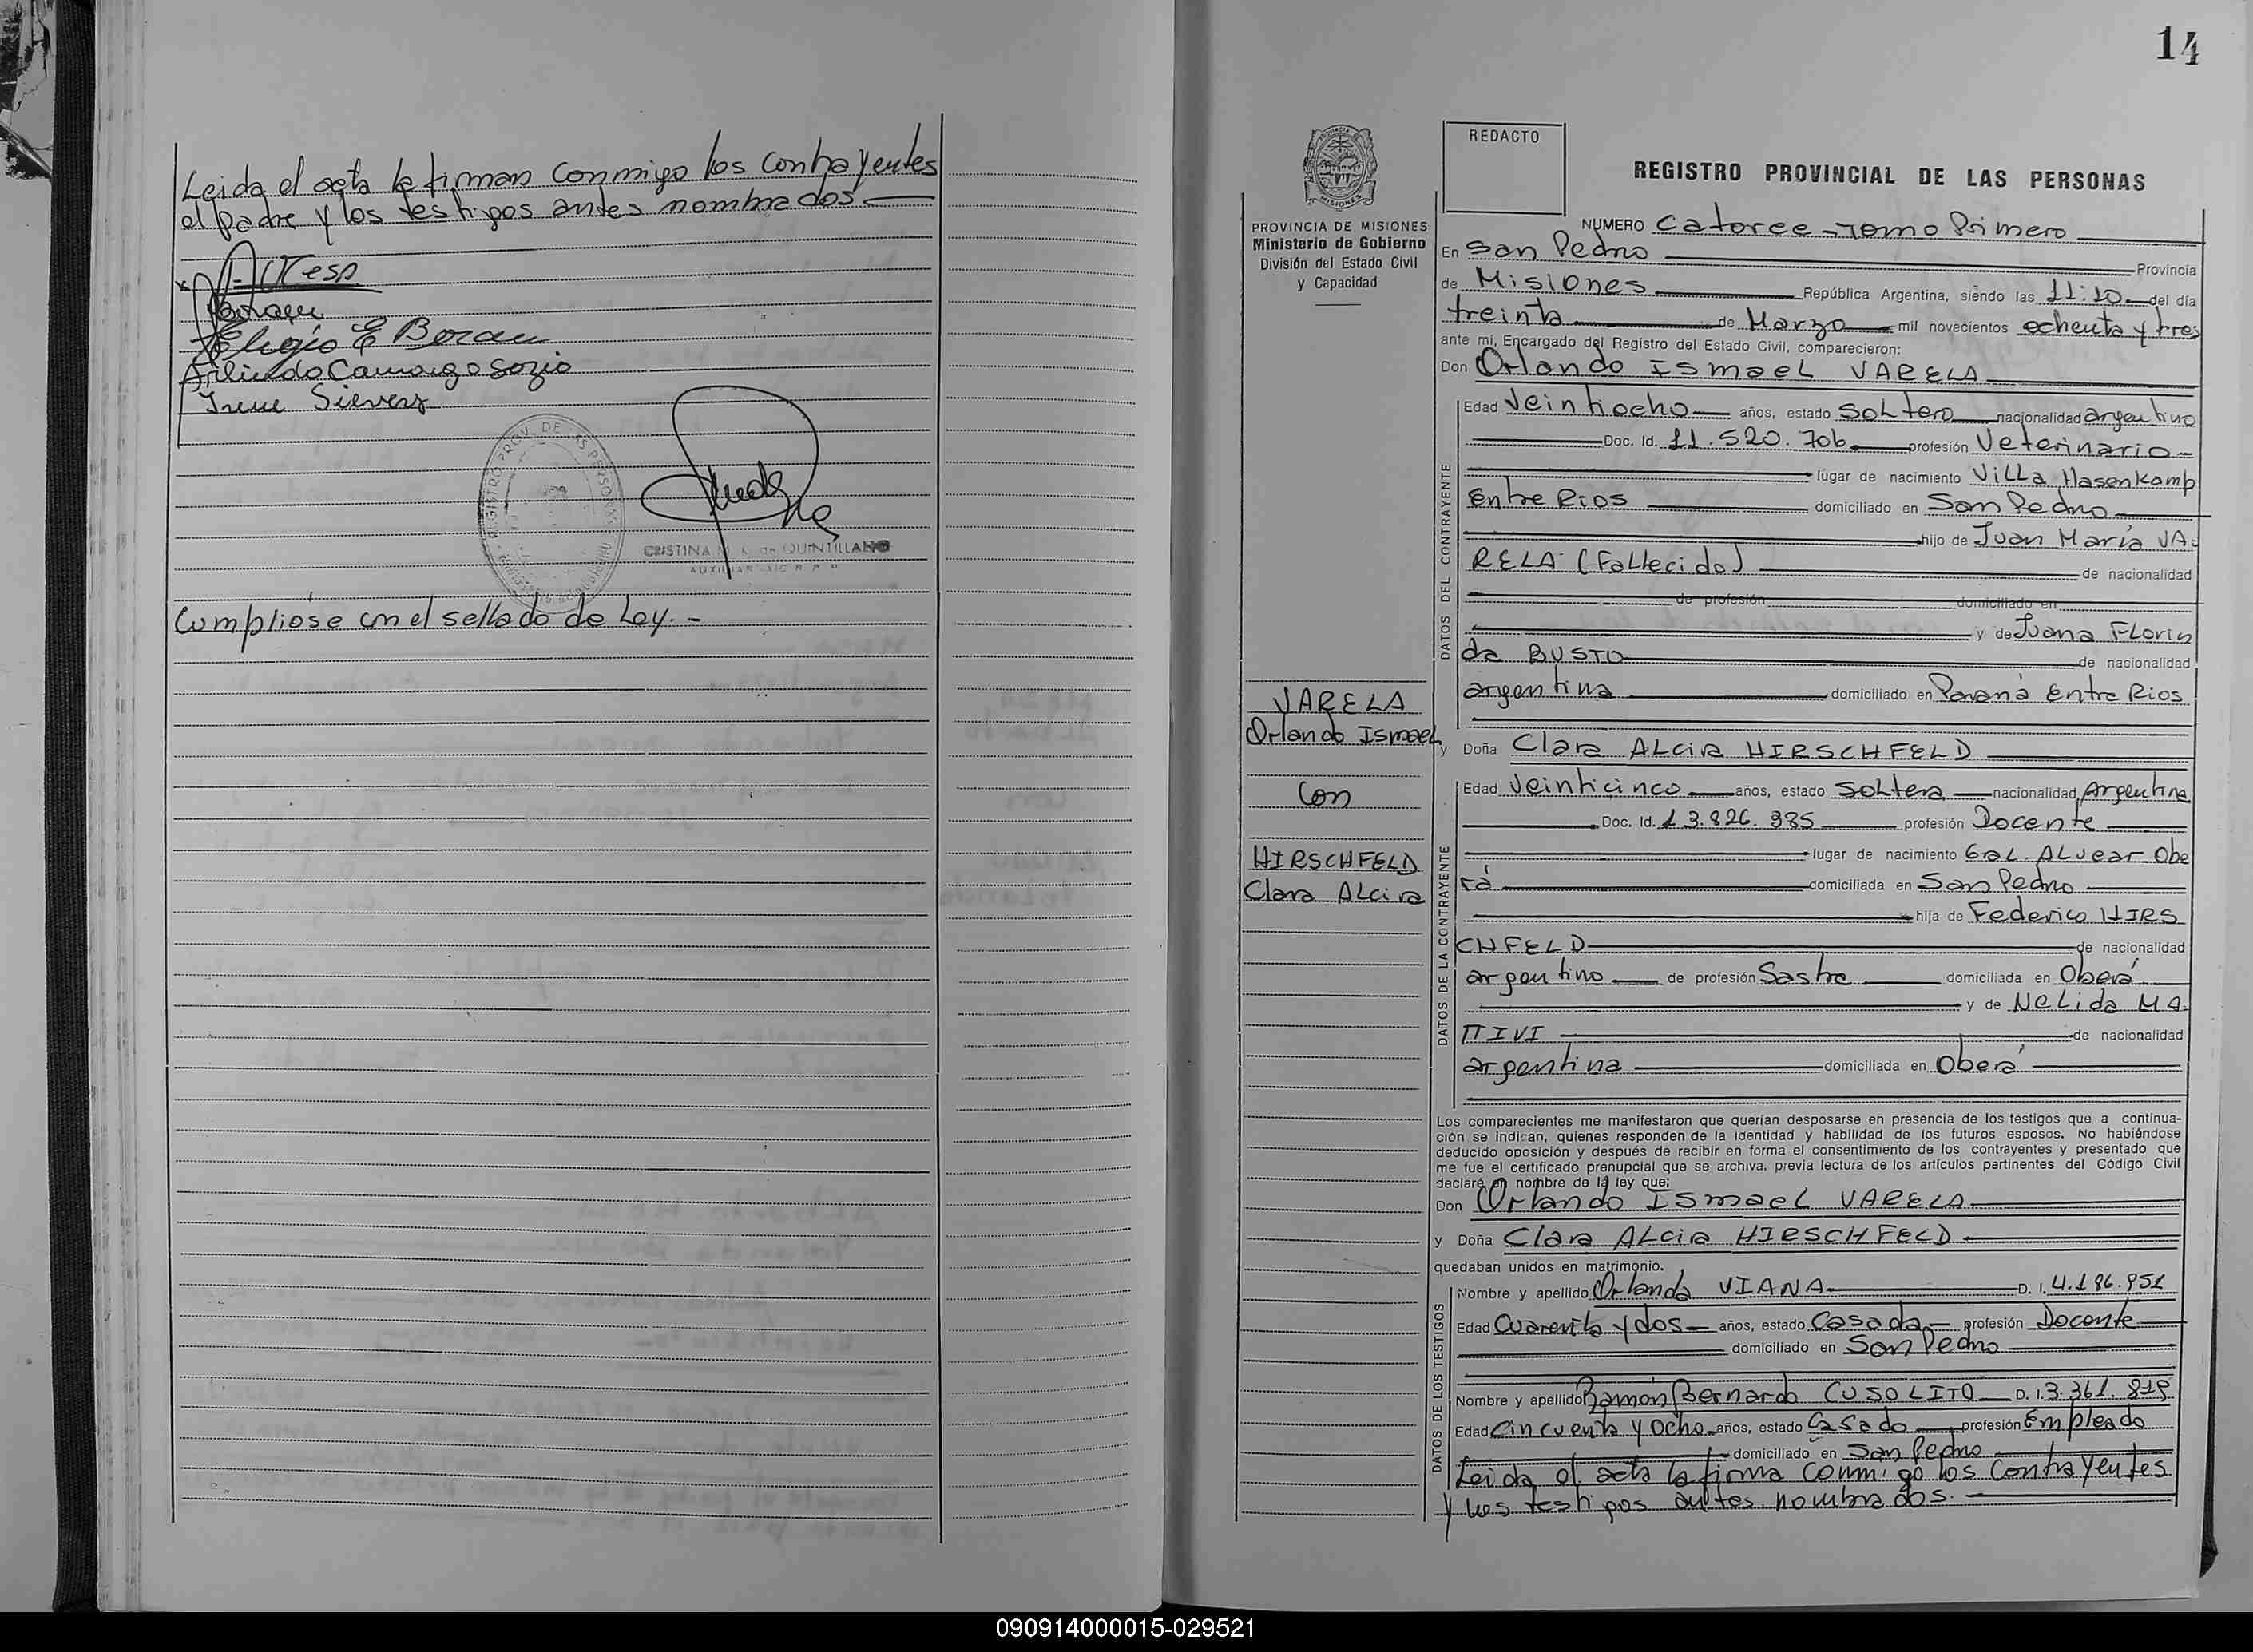 Leida el acta la firman conmigo los contrayentes
el padre y los testigos antes nombrados
Eligio E Borau
Arlindo Camargo Sozio
Irene Sievers
REGISTRO PROV. DE LAS PERSONAS
CRISTINA M. de QUINTILLANO
AUXILIAR
Cumpliose con el sellado de Ley. -
14
REDACTO
PROVINCIA DE MISIONES
Ministerio de Gobierno
División del Estado Civil
y Capacidad
REGISTRO PROVINCIAL DE LAS PERSONAS
NUMERO Catorce - Tomo Primero
En San Pedro Provincia
de Misiones República Argentina, siendo las 11:10 del día
treinta de Marzo mil novecientos ochenta y tres
ante mí, Encargado del Registro del Estado Civil, comparecieron:
Don Orlando Ismael VARELA
DATOS DEL CONTRAYENTE
Edad Veintiocho años, estado Soltero nacionalidad argentino
Doc. Id. 11.520.706 profesión Veterinario
lugar de nacimiento Villa Hasenkamp
Entre Rios domiciliado en San Pedro
hijo de Juan María VA-
RELA (Fallecido) de nacionalidad
de profesión domiciliado en
y de Juana Florin
da BUSTO de nacionalidad
argentina domiciliado en Paraná Entre Rios
VARELA
Orlando Ismael
Con
HIRSCHFELD
Clara Alcira
y Doña Clara Alcira HIRSCHFELD
DATOS DE LA CONTRAYENTE
Edad Veinticinco años, estado Soltera nacionalidad Argentina
Doc. Id. 13.826.985 profesión Docente
lugar de nacimiento Gral. Alvear Obe
rá domiciliada en San Pedro
hija de Federico HIRS
CHFELD de nacionalidad
argentino de profesión Sastre domiciliada en Oberá
y de Nelida MA
TTIVI de nacionalidad
argentina domiciliada en Oberá
Los comparecientes me manifestaron que querían desposarse en presencia de los testigos que a continua-
ción se indican, quienes responden de la identidad y habilidad de los futuros esposos. No habiéndose
deducido oposición y después de recibir en forma el consentimiento de los contrayentes y presentado que
me fue el certificado prenupcial que se archiva, previa lectura de los artículos pertinentes del Código Civil
declaré en nombre de la ley que;
Don Orlando Ismael VARELA
y Doña Clara Alcira HIRSCHFELD
quedaban unidos en matrimonio.
DATOS DE LOS TESTIGOS
Nombre y apellido Orlanda VIANA D. I. 4.186.951
Edad Cuarenta y dos años, estado Casada profesión Docente
domiciliado en San Pedro
Nombre y apellido Ramón Bernardo CUSOLITO D. I. 3.361.819
Edad Cincuenta y Ocho años, estado Casado profesión Empleado
domiciliado en San Pedro
Leida el acta la firma conmigo los contrayentes
y los testigos antes nombrados.
090914000015-029521